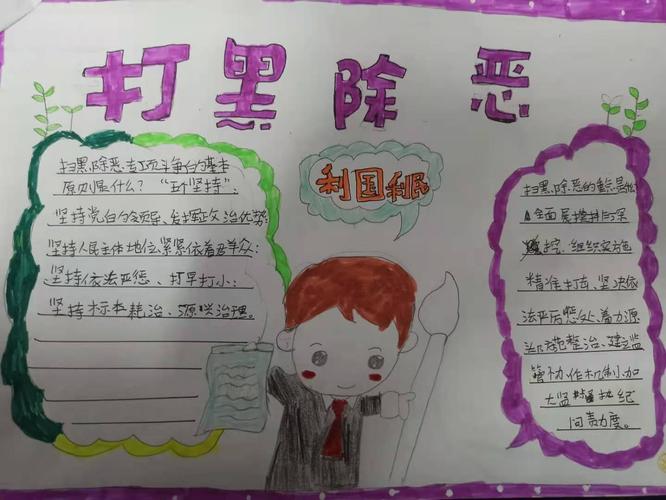 打黑除恶
利国利民
扫黑除恶专项斗争的基本
原则是什么？“五个坚持”：
坚持党的领导、发挥政治优势：
坚持人民主体地位紧紧依靠群众：
坚持依法严惩、打早打小：
坚持标本兼治、源头治理。
扫黑除恶的重点是
全面展摸排
挖、组织实施
精准打击、坚决依
法严厉惩处、着力源
头防范整治、建立监
管协作机制加
大监督执纪
问责力度。